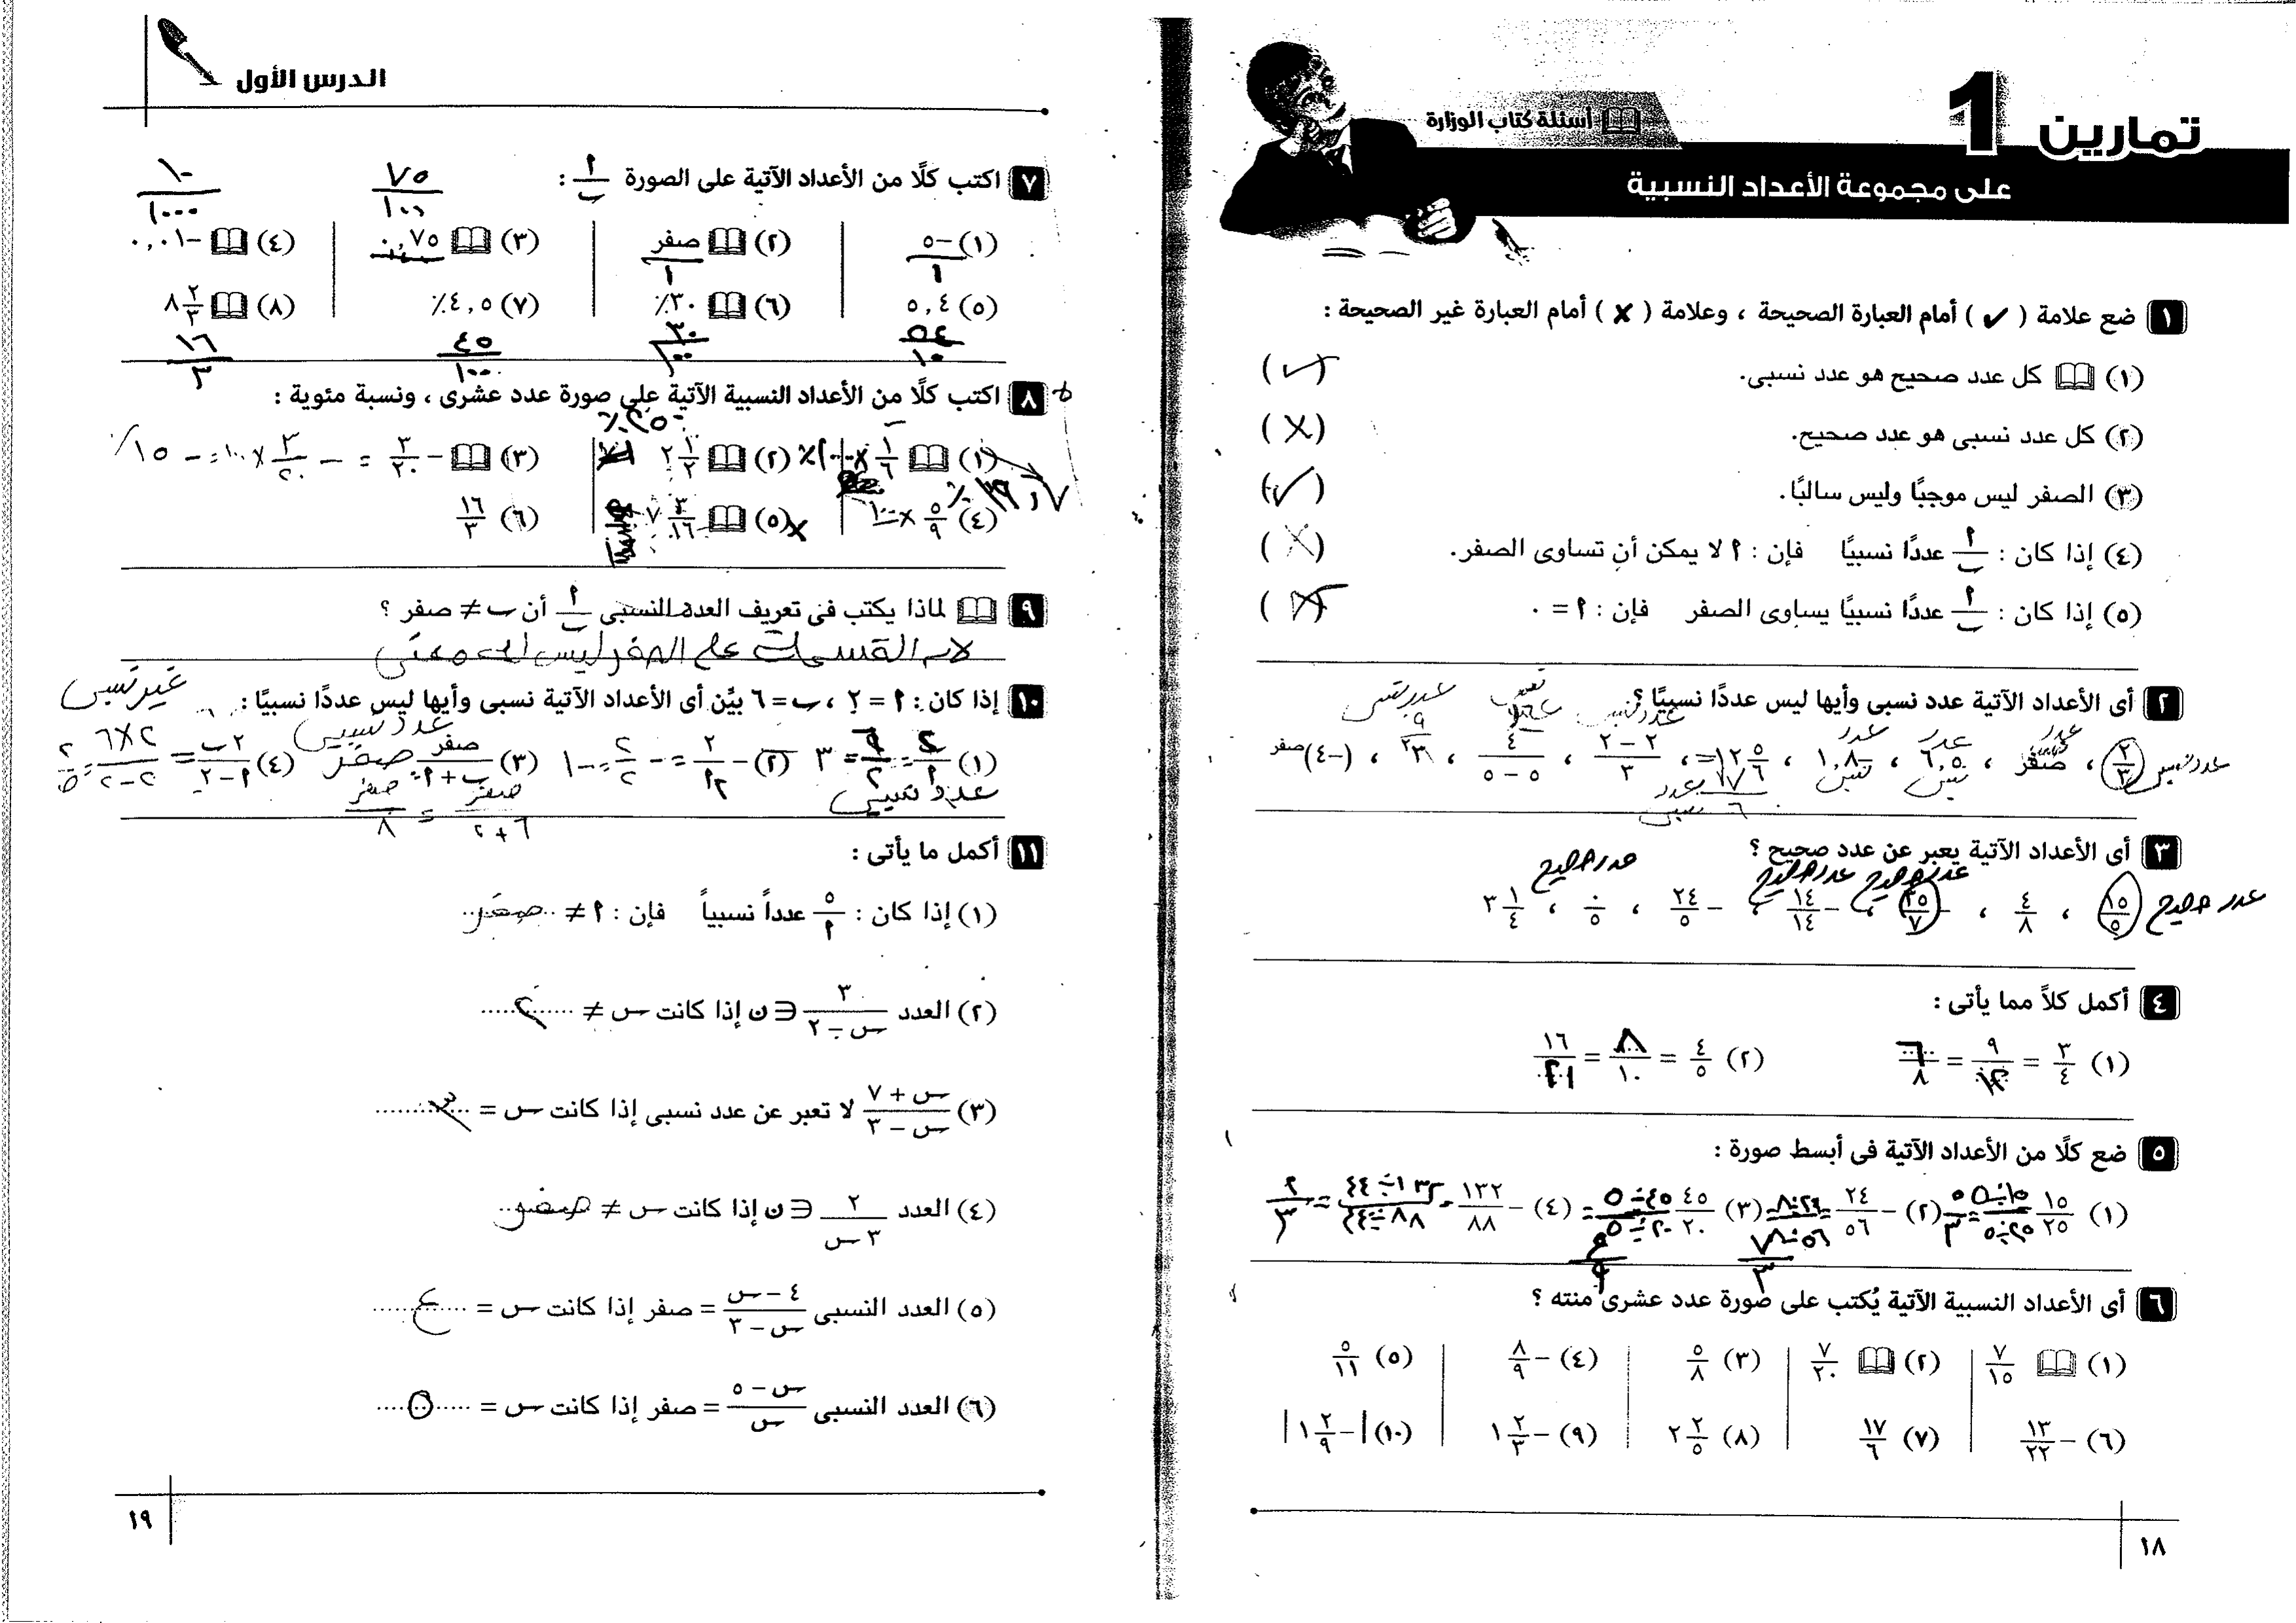 تمارين 1
أسئلة كتاب الوزارة
على مجموعة الأعداد النسبية
١ ضع علامة ( ✓ ) أمام العبارة الصحيحة ، وعلامة ( ✗ ) أمام العبارة غير الصحيحة :
(١) كل عدد صحيح هو عدد نسبى. ( ✓ )
(٢) كل عدد نسبى هو عدد صحيح. ( ✗ )
(٣) الصفر ليس موجبًا وليس سالبًا. ( ✓ )
(٤) إذا كان : أ/ب عددًا نسبيًا فإن : أ لا يمكن أن تساوى الصفر. ( ✗ )
(٥) إذا كان : أ/ب عددًا نسبيًا يساوى الصفر فإن : أ = ٠
٢ أى الأعداد الآتية عدد نسبى وأيها ليس عددًا نسبيًا ؟
٢/٣ ، صفر ، ٦,٥ ، ١,٨ ، ١٢ ٥/٦ ، (٢ − ٢)/٣ ، ٤/(٥ − ٥) ، ، (−٤)صفر
٣ أى الأعداد الآتية يعبر عن عدد صحيح ؟
عدد صحيح ١٥/٥ ، ٤/٨ ، − ٢٥/٧ ، − ١٤/١٤ ، − ٢٤/٥ ، ٠/٥ ، ٣ ١/٤
٤ أكمل كلاً مما يأتى :
(١) ٣/٤ = ٩/١٢ = ٦/٨ (٢) ٤/٥ = ٨/١٠ = ١٦/
٥ ضع كلًا من الأعداد الآتية فى أبسط صورة :
(١) ١٥/٢٥ (٢) − ٢٤/٥٦ (٣) ٤٥/٢٠ (٤) − ١٣٢/٨٨
٦ أى الأعداد النسبية الآتية يُكتب على صورة عدد عشرى منته ؟
(١) ٧/١٥ (٢) ٧/٢٠ (٣) ٥/٨ (٤) − ٨/٩ (٥) ٥/١١
(٦) − ١٣/٢٢ (٧) ١٧/٦ (٨) ٢ ٢/٥ (٩) − ١ ٢/٣ (١٠) |− ١ ٢/٩|
١٨
الدرس الأول
٧ اكتب كلًا من الأعداد الآتية على الصورة أ/ب : ٧٥/١٠٠ ١٠/١٠٠٠
(١) −٥/١ (٢) صفر/١ (٣) ٠,٧٥ (٤) −٠,٠١
(٥) ٥,٤ (٦) ٣٠٪ (٧) ٤,٥٪ (٨) ٨ ٢/٣
٥٤/١٠ ٣٠/١٠٠ ٤٥/١٠٠ ١٦/٣
٨ اكتب كلًا من الأعداد النسبية الآتية على صورة عدد عشرى ، ونسبة مئوية :
(١) ١/٦ × ١٠٠٪ (٢) ٢ ١/٢ ٢٥٠٪ (٣) − ٣/٢٠ = − ٣/٢٠ × ١٠٠ = − ١٥٪
(٤) ٥/٩ × ١٠٠ (٥) ٧ ٣/١٦ (٦) ١٦/٣
٩ لماذا يكتب فى تعريف العدد النسبى أ/ب أن ب ≠ صفر ؟
لان القسمة على الصفر ليس له معنى
١٠ إذا كان : أ = ٢ ، ب = ٦ بيِّن أى الأعداد الآتية نسبى وأيها ليس عددًا نسبيًا : غير نسبى
(١) ب/أ = ٦/٢ = ٣ (٢) − ٢/أ = − ٢/٢ = −١ (٣) صفر/(ب + أ) = صفر (٤) ٢ب/(أ − ٢) = ٢×٦/(٢−٢)
عدد نسبى صفر/(٦+٢) = صفر/٨ عدد نسبى
١١ أكمل ما يأتى :
(١) إذا كان : ٥/أ عدداً نسبياً فإن : أ ≠ صفر
(٢) العدد ٣/(س − ٢) ∈ ن إذا كانت س ≠ ٢
(٣) (س + ٧)/(س − ٣) لا تعبر عن عدد نسبى إذا كانت س = ٣
(٤) العدد ٢/(٣ س) ∈ ن إذا كانت س ≠ صفر
(٥) العدد النسبى (٤ − س)/(س − ٣) = صفر إذا كانت س = ٤
(٦) العدد النسبى (س − ٥)/س = صفر إذا كانت س = ٥
١٩